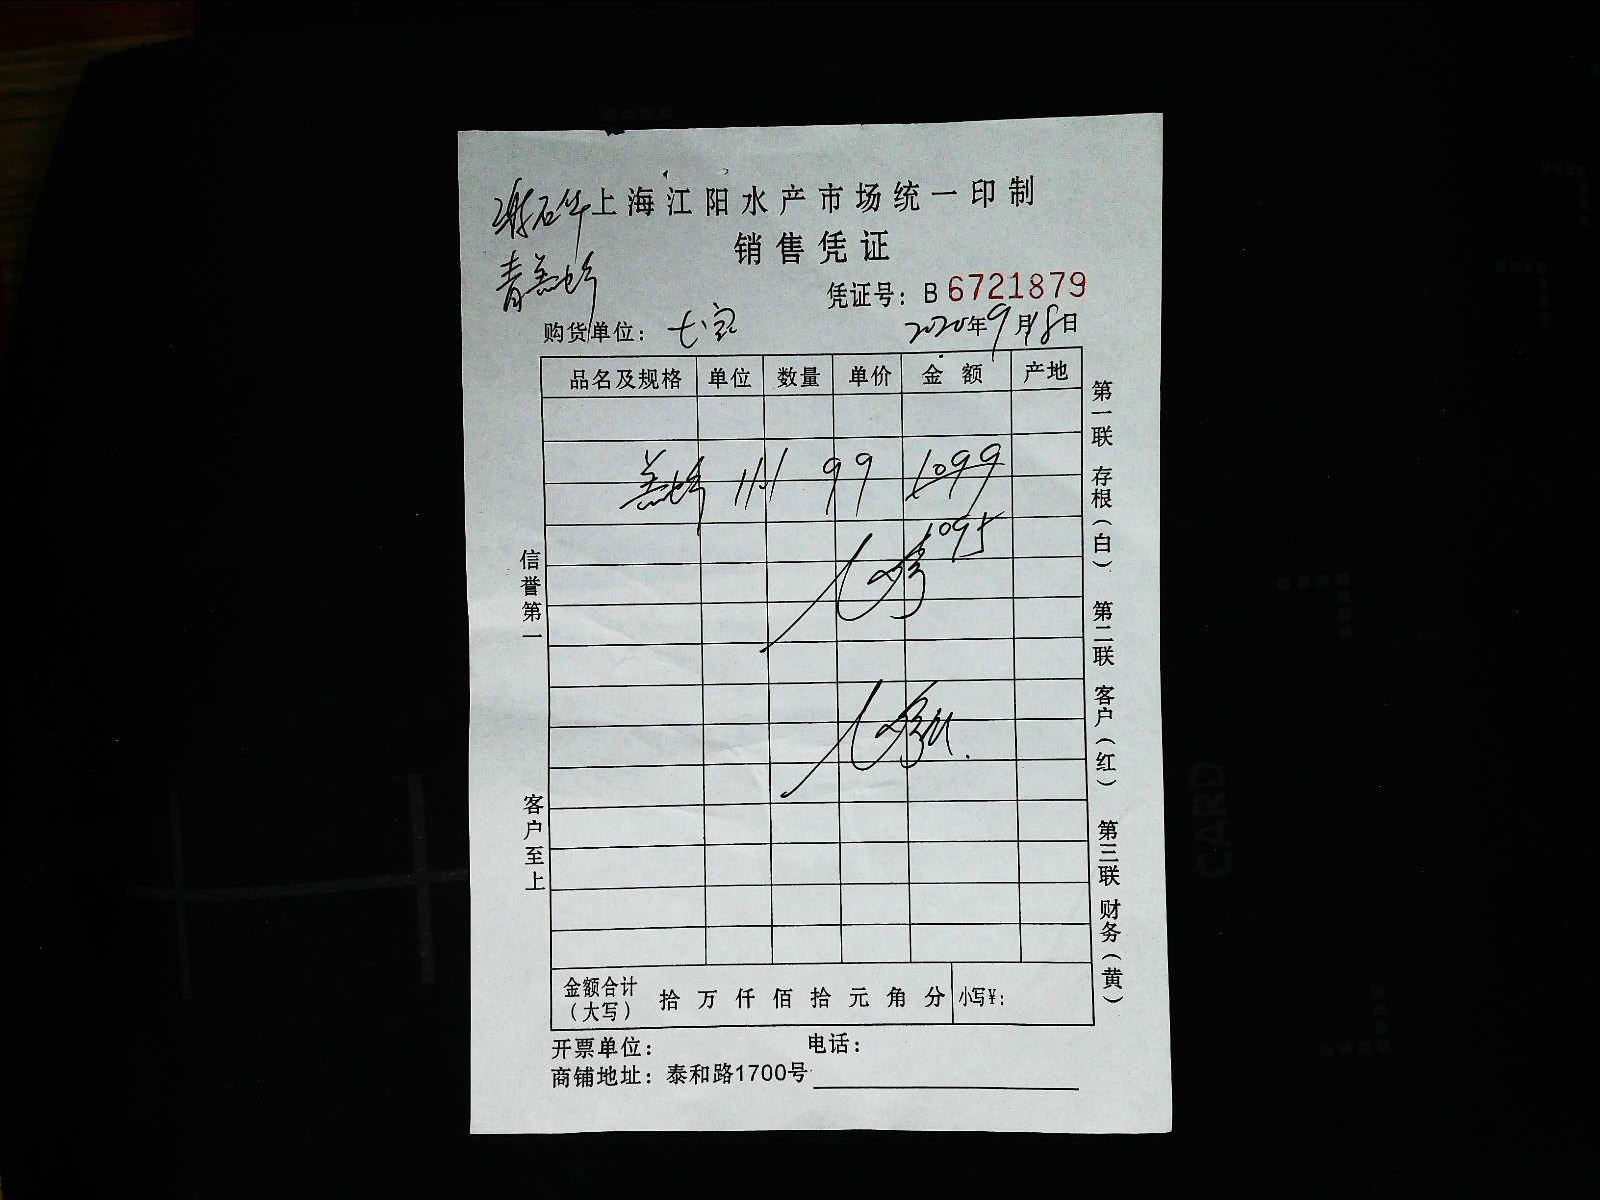 上海江阳水产市场统一印制
销售凭证
凭证号：B 6721879
购货单位：七宝
2020年9月18日
品名及规格 单位 数量 单价 金额 产地
11.1 99 1099
1095
信誉第一
客户至上
第一联 存根（白） 第二联 客户（红） 第三联 财务（黄）
金额合计（大写） 拾 万 仟 佰 拾 元 角 分 小写¥：
开票单位： 电话：
商铺地址：泰和路1700号